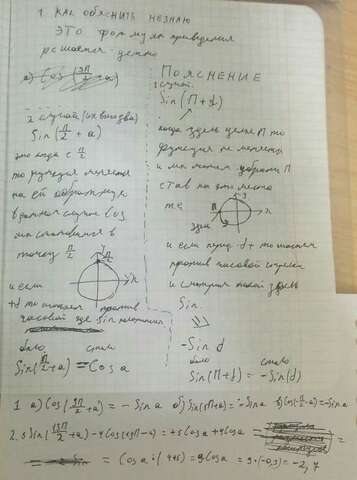 1. КАК ОБЪЯСНИТЬ НЕЗНАЮ
ЭТО ФОРМУЛА ПРИВЕДЕНИЯ
решается устно
а) Cos(3П/2 + a)
2 случай (их всего два)
Sin(П/2 + a)
это когда с П/2
то функция меняется
на ей обратную
в данном случае Cos
мы становимся в
точку П/2
и если
+d то шагаем против
часовой где Sin положит
было стало
Sin(П/2 + a) = Cos a
ПОЯСНЕНИЕ
1 случай
Sin(П + d)
когда здесь целое П то
функция не меняется
и мы можем убрать П
став на это место
т.е.
здесь
и если перед d + то шагаем
против часовой стрелки
и смотрим какой здесь
Sin
- Sin d
было стало
Sin(П + d) = - Sin(d)
1 а) Cos(3П/2 + a) = - Sin a б) Sin(3П + a) = - Sin a в) Cos(П/2 - a) = - Sin a
2. 5 Sin(13П/2 + a) - 4 Cos(13П - a) = +5 Cos a + 4 Cos a =
= Cos a · (4+5) = 9 Cos a = 9 · (-0,3) = -2,7